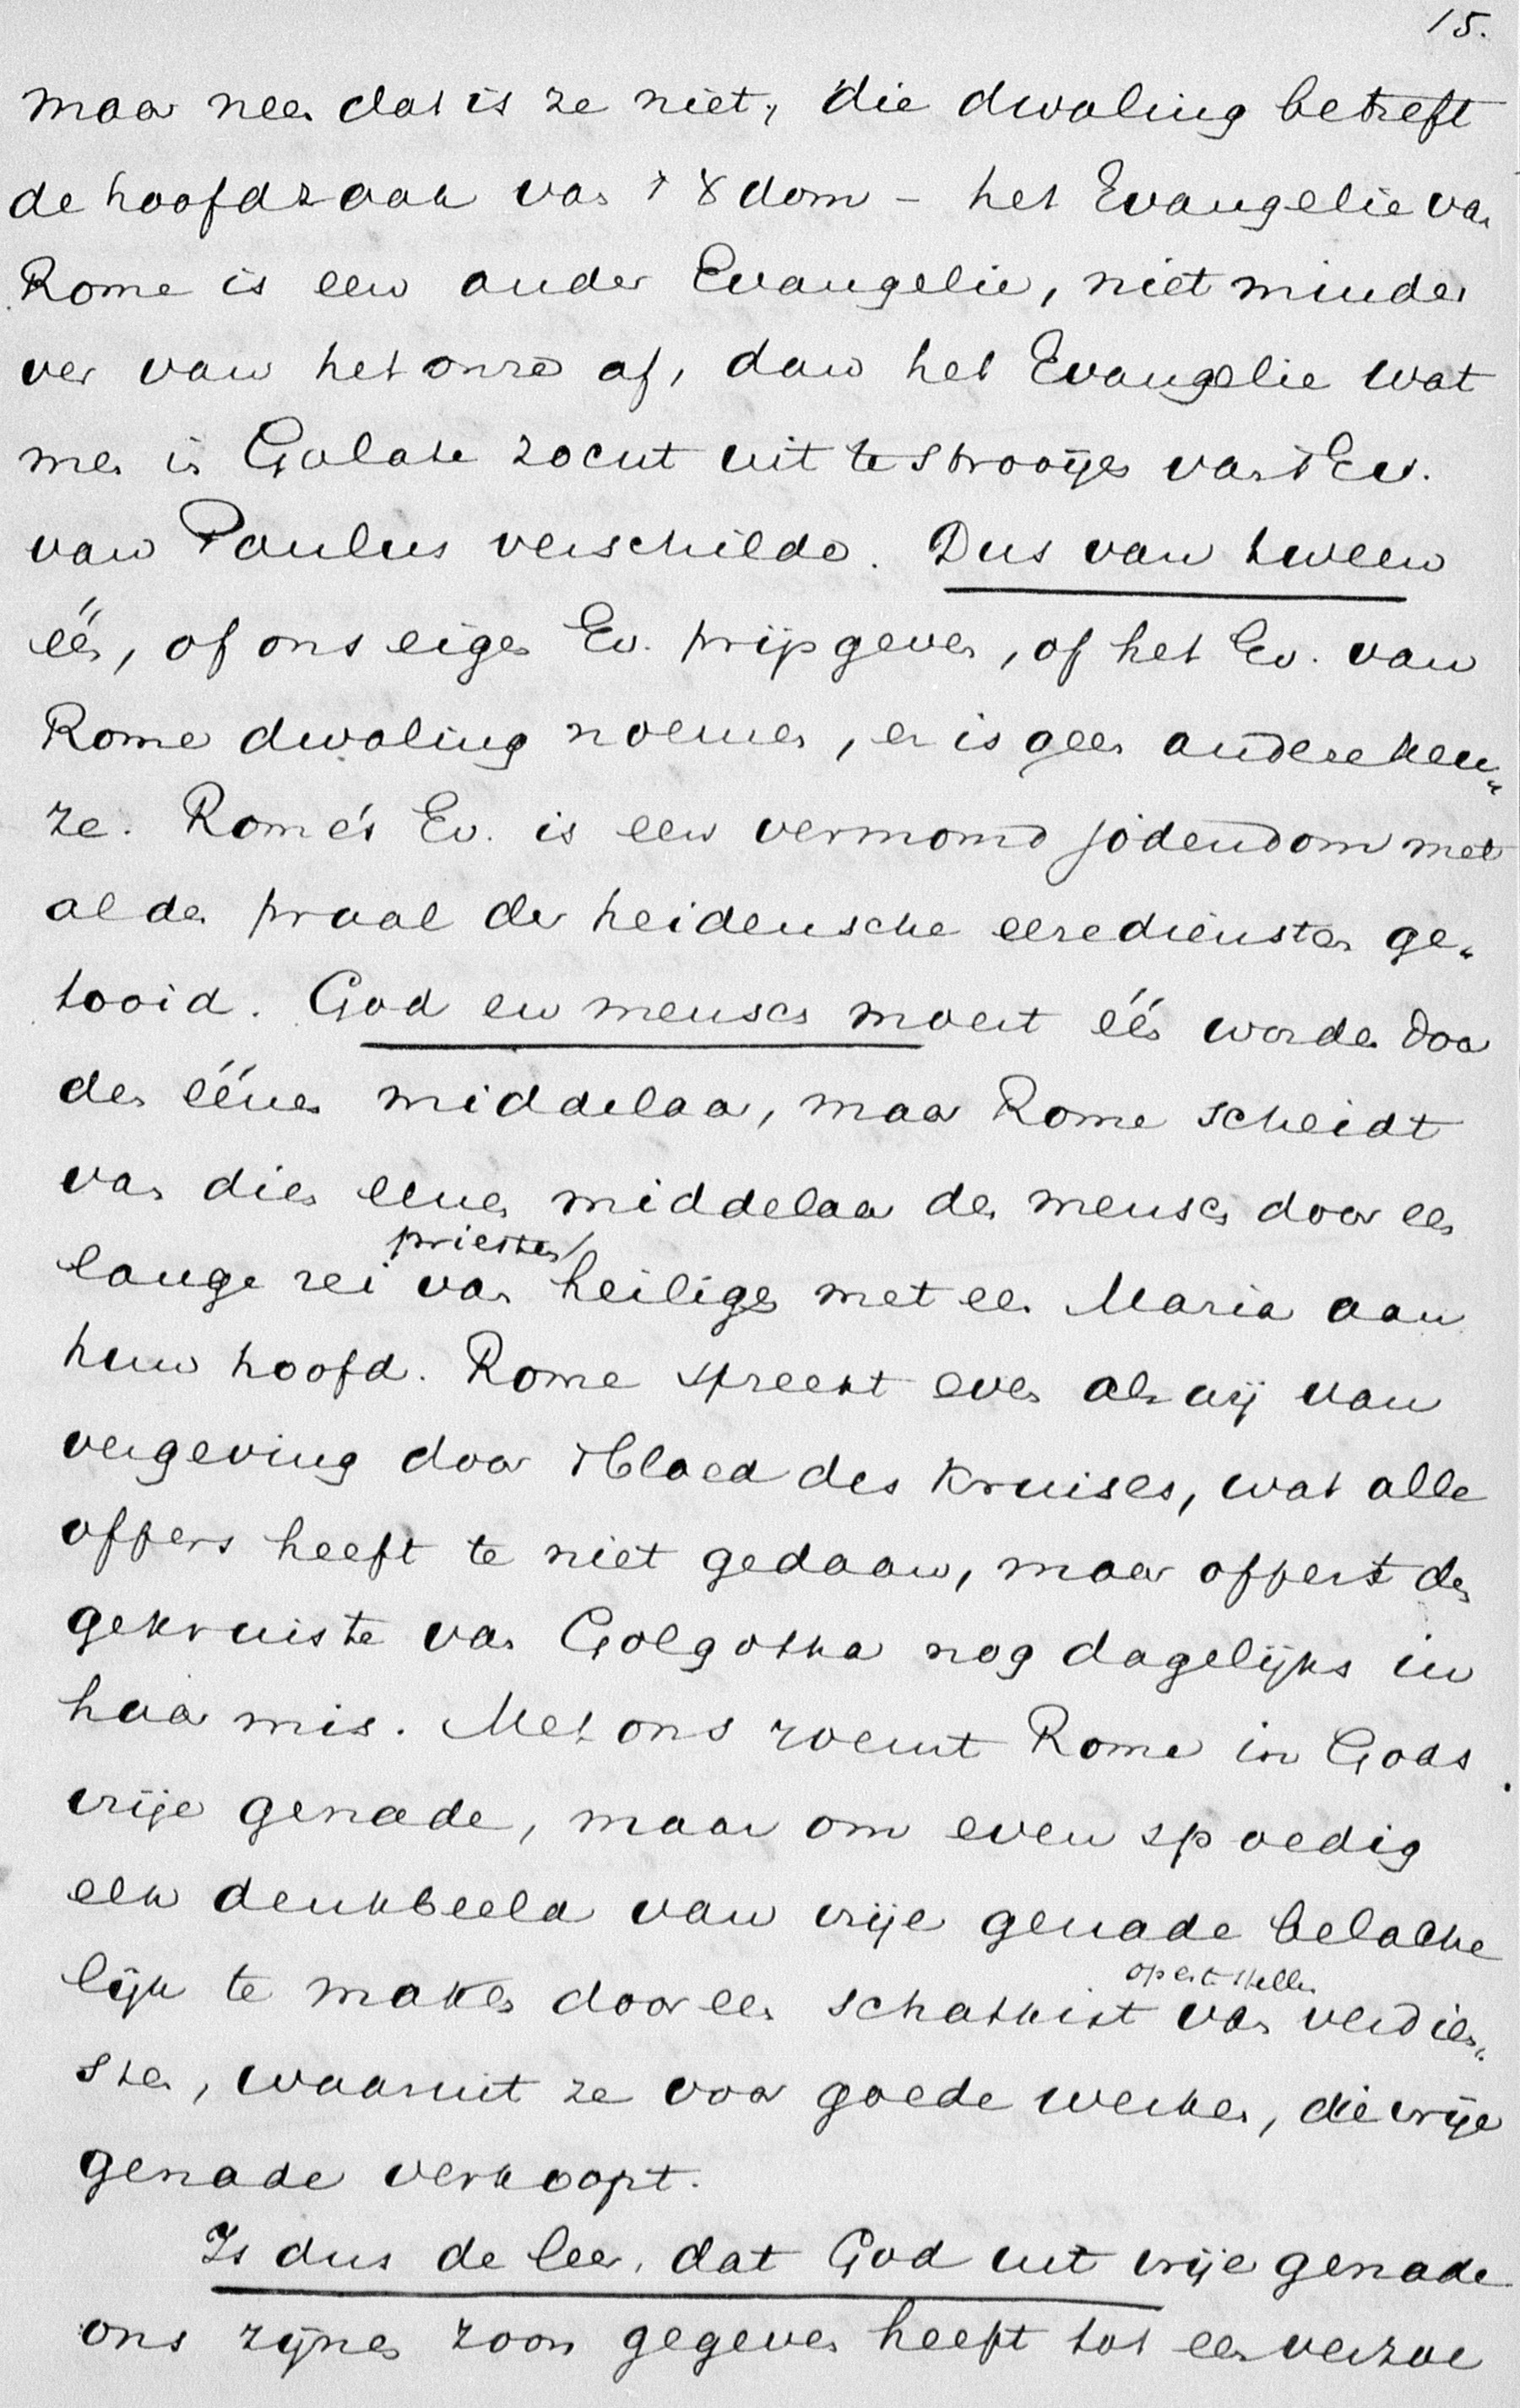 15.
maar neen dat is ze niet, die dwaling betreft
de hoofdzaak van 't Xdom - het Evangelie van
Rome is een ander Evangelie, niet minder
ver van het onze af, dan het Evangelie wat
men in Galate zocht uit te strooijen van 't Ev.
van Paulus verschilde. Dus van tween
één, of ons eigen Ev. prijsgeven, of het Ev. van
Rome dwaling noemen, er is geen andere keu„
ze. Rome's Ev. is een vermomd jodendom met
al den praal der heidensche eerediensten ge„
tooid. God en mensch moest één worden door
den éénen middelaar, maar Rome scheidt
van dien eenen middelaar den mensch door een
priesters
lange rei van heiligen met een Maria aan
hun hoofd. Rome spreekt even als wij van
vergeving door 't bloed des kruises, wat alle
offers heeft te niet gedaan, maar offert den
gekruiste van Golgotha nog dagelijks in
haar mis. Met ons roemt Rome in Gods
vrije genade, maar om even spoedig
elk denkbeeld van vrije genade belache
lijk te maken door een schatkist van verdien„
open te stellen
sten, waaruit ze voor goede werken, die vrije
genade verkoopt.
Is dus de leer, dat God uit vrije genade
ons zijnen zoon gegeven heeft tot een verzoe